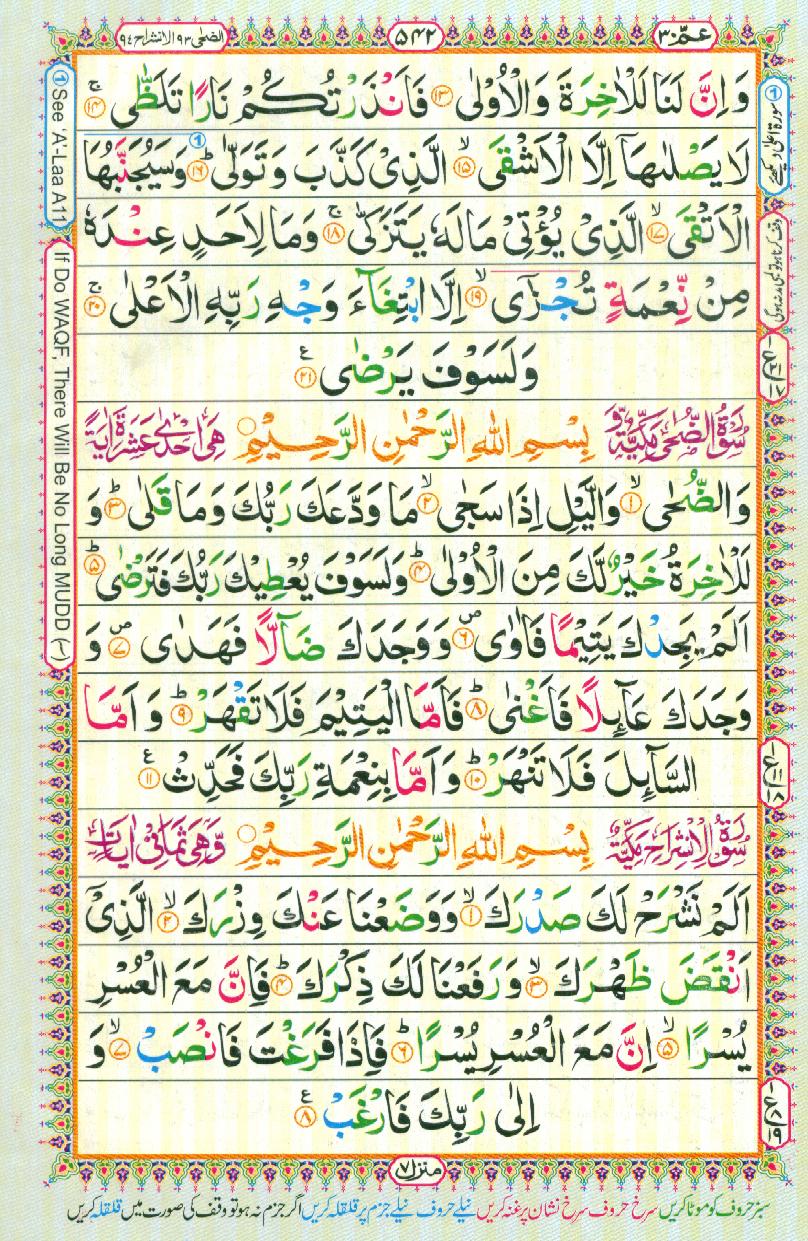 عمّ ٣٠
٥٤٢
الضحٰی ٩٣ الانشراح ٩٤
وَاِنَّ لَنَا لَلْاٰخِرَةَ وَالْاُوْلٰى ١٣ فَاَنْذَرْتُكُمْ نَارًا تَلَظّٰى ۚ ١٤
لَا يَصْلٰىهَاۤ اِلَّا الْاَشْقَى ۙ ١٥ الَّذِىْ كَذَّبَ وَتَوَلّٰى ؕ ١٦ وَسَيُجَنَّبُهَا
الْاَتْقَى ۙ ١٧ الَّذِىْ يُؤْتِىْ مَالَهٗ يَتَزَكّٰى ۚ ١٨ وَمَا لِاَحَدٍ عِنْدَهٗ
مِنْ نِّعْمَةٍ تُجْزٰٓى ۙ ١٩ اِلَّا ابْتِغَآءَ وَجْهِ رَبِّهِ الْاَعْلٰى ۚ ٢٠
وَلَسَوْفَ يَرْضٰى ٢١
سُوْرَةُ الضُّحٰى مَكِّيَّةٌ وَّ بِسْمِ اللّٰهِ الرَّحْمٰنِ الرَّحِيْمِ هِىَ اِحْدٰى عَشْرَةَ اٰيَةً
وَالضُّحٰى ۙ ١ وَالَّيْلِ اِذَا سَجٰى ۙ ٢ مَا وَدَّعَكَ رَبُّكَ وَمَا قَلٰى ؕ ٣ وَ
لَلْاٰخِرَةُ خَيْرٌ لَّكَ مِنَ الْاُوْلٰى ؕ ٤ وَلَسَوْفَ يُعْطِيْكَ رَبُّكَ فَتَرْضٰى ؕ ٥
اَلَمْ يَجِدْكَ يَتِيْمًا فَاٰوٰى ۪ ٦ وَوَجَدَكَ ضَآلًّا فَهَدٰى ۪ ٧ وَ
وَجَدَكَ عَآئِلًا فَاَغْنٰى ؕ ٨ فَاَمَّا الْيَتِيْمَ فَلَا تَقْهَرْ ؕ ٩ وَاَمَّا
السَّآئِلَ فَلَا تَنْهَرْ ؕ ١٠ وَاَمَّا بِنِعْمَةِ رَبِّكَ فَحَدِّثْ ١١
سُوْرَةُ الْاِنْشِرَاحِ مَكِّيَّةٌ بِسْمِ اللّٰهِ الرَّحْمٰنِ الرَّحِيْمِ وَّهِىَ ثَمَانِىْ اٰيَاتٍ
اَلَمْ نَشْرَحْ لَكَ صَدْرَكَ ۙ ١ وَوَضَعْنَا عَنْكَ وِزْرَكَ ۙ ٢ الَّذِىْٓ
اَنْقَضَ ظَهْرَكَ ۙ ٣ وَرَفَعْنَا لَكَ ذِكْرَكَ ؕ ٤ فَاِنَّ مَعَ الْعُسْرِ
يُسْرًا ۙ ٥ اِنَّ مَعَ الْعُسْرِ يُسْرًا ؕ ٦ فَاِذَا فَرَغْتَ فَانْصَبْ ۙ ٧ وَ
اِلٰى رَبِّكَ فَارْغَبْ ٨
منزل ٧
سبز حروف کو موٹا کریں سرخ حروف سرخ نشان پر غنہ کریں نیلے حروف نیلے جزم پر قلقلہ کریں اگر جزم نہ ہو تو وقف کی صورت میں قلقلہ کریں
① See 'A'-Laa A11
If Do WAQF, There Will Be No Long MUDD (~)
① سورۃ اعلٰی دیکھیے